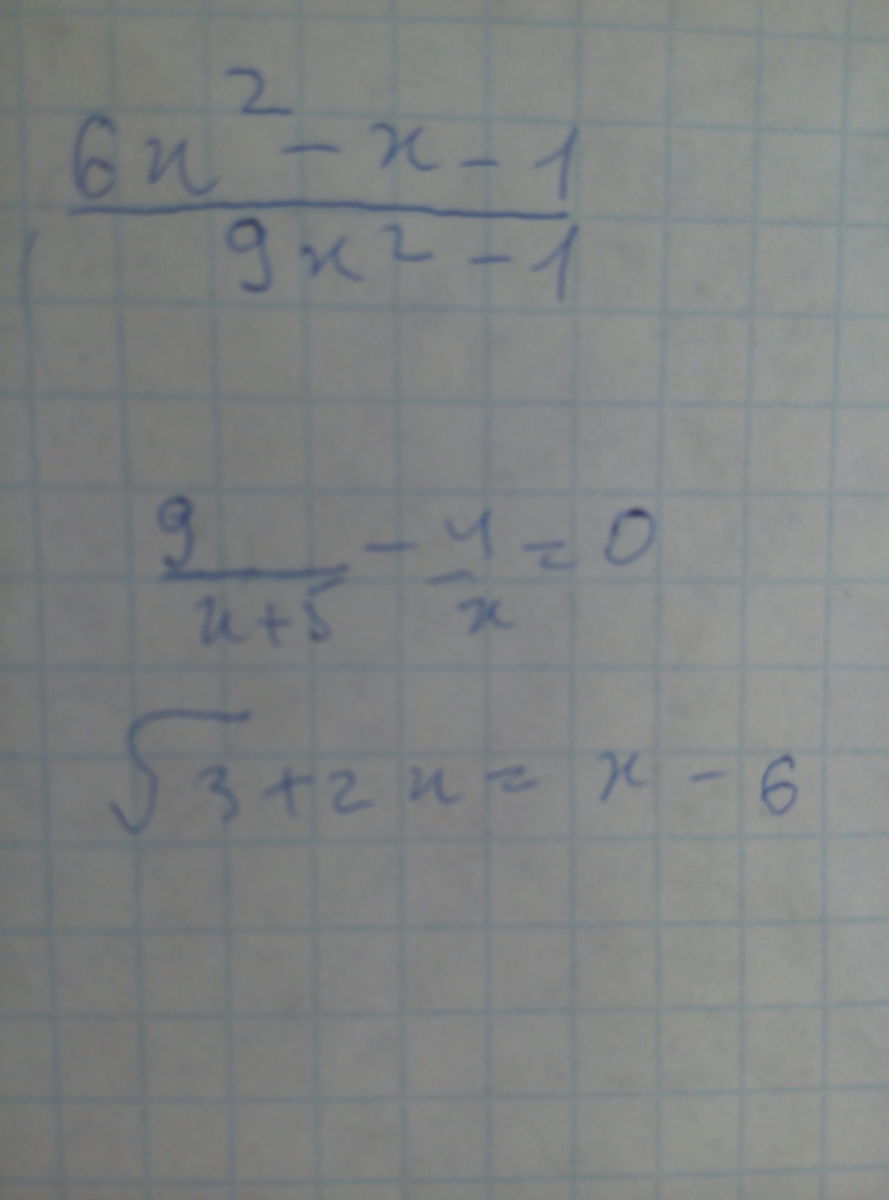 6x² - x - 1
9x² - 1
9/(x+5) - 4/x = 0
√3+2x = x - 6